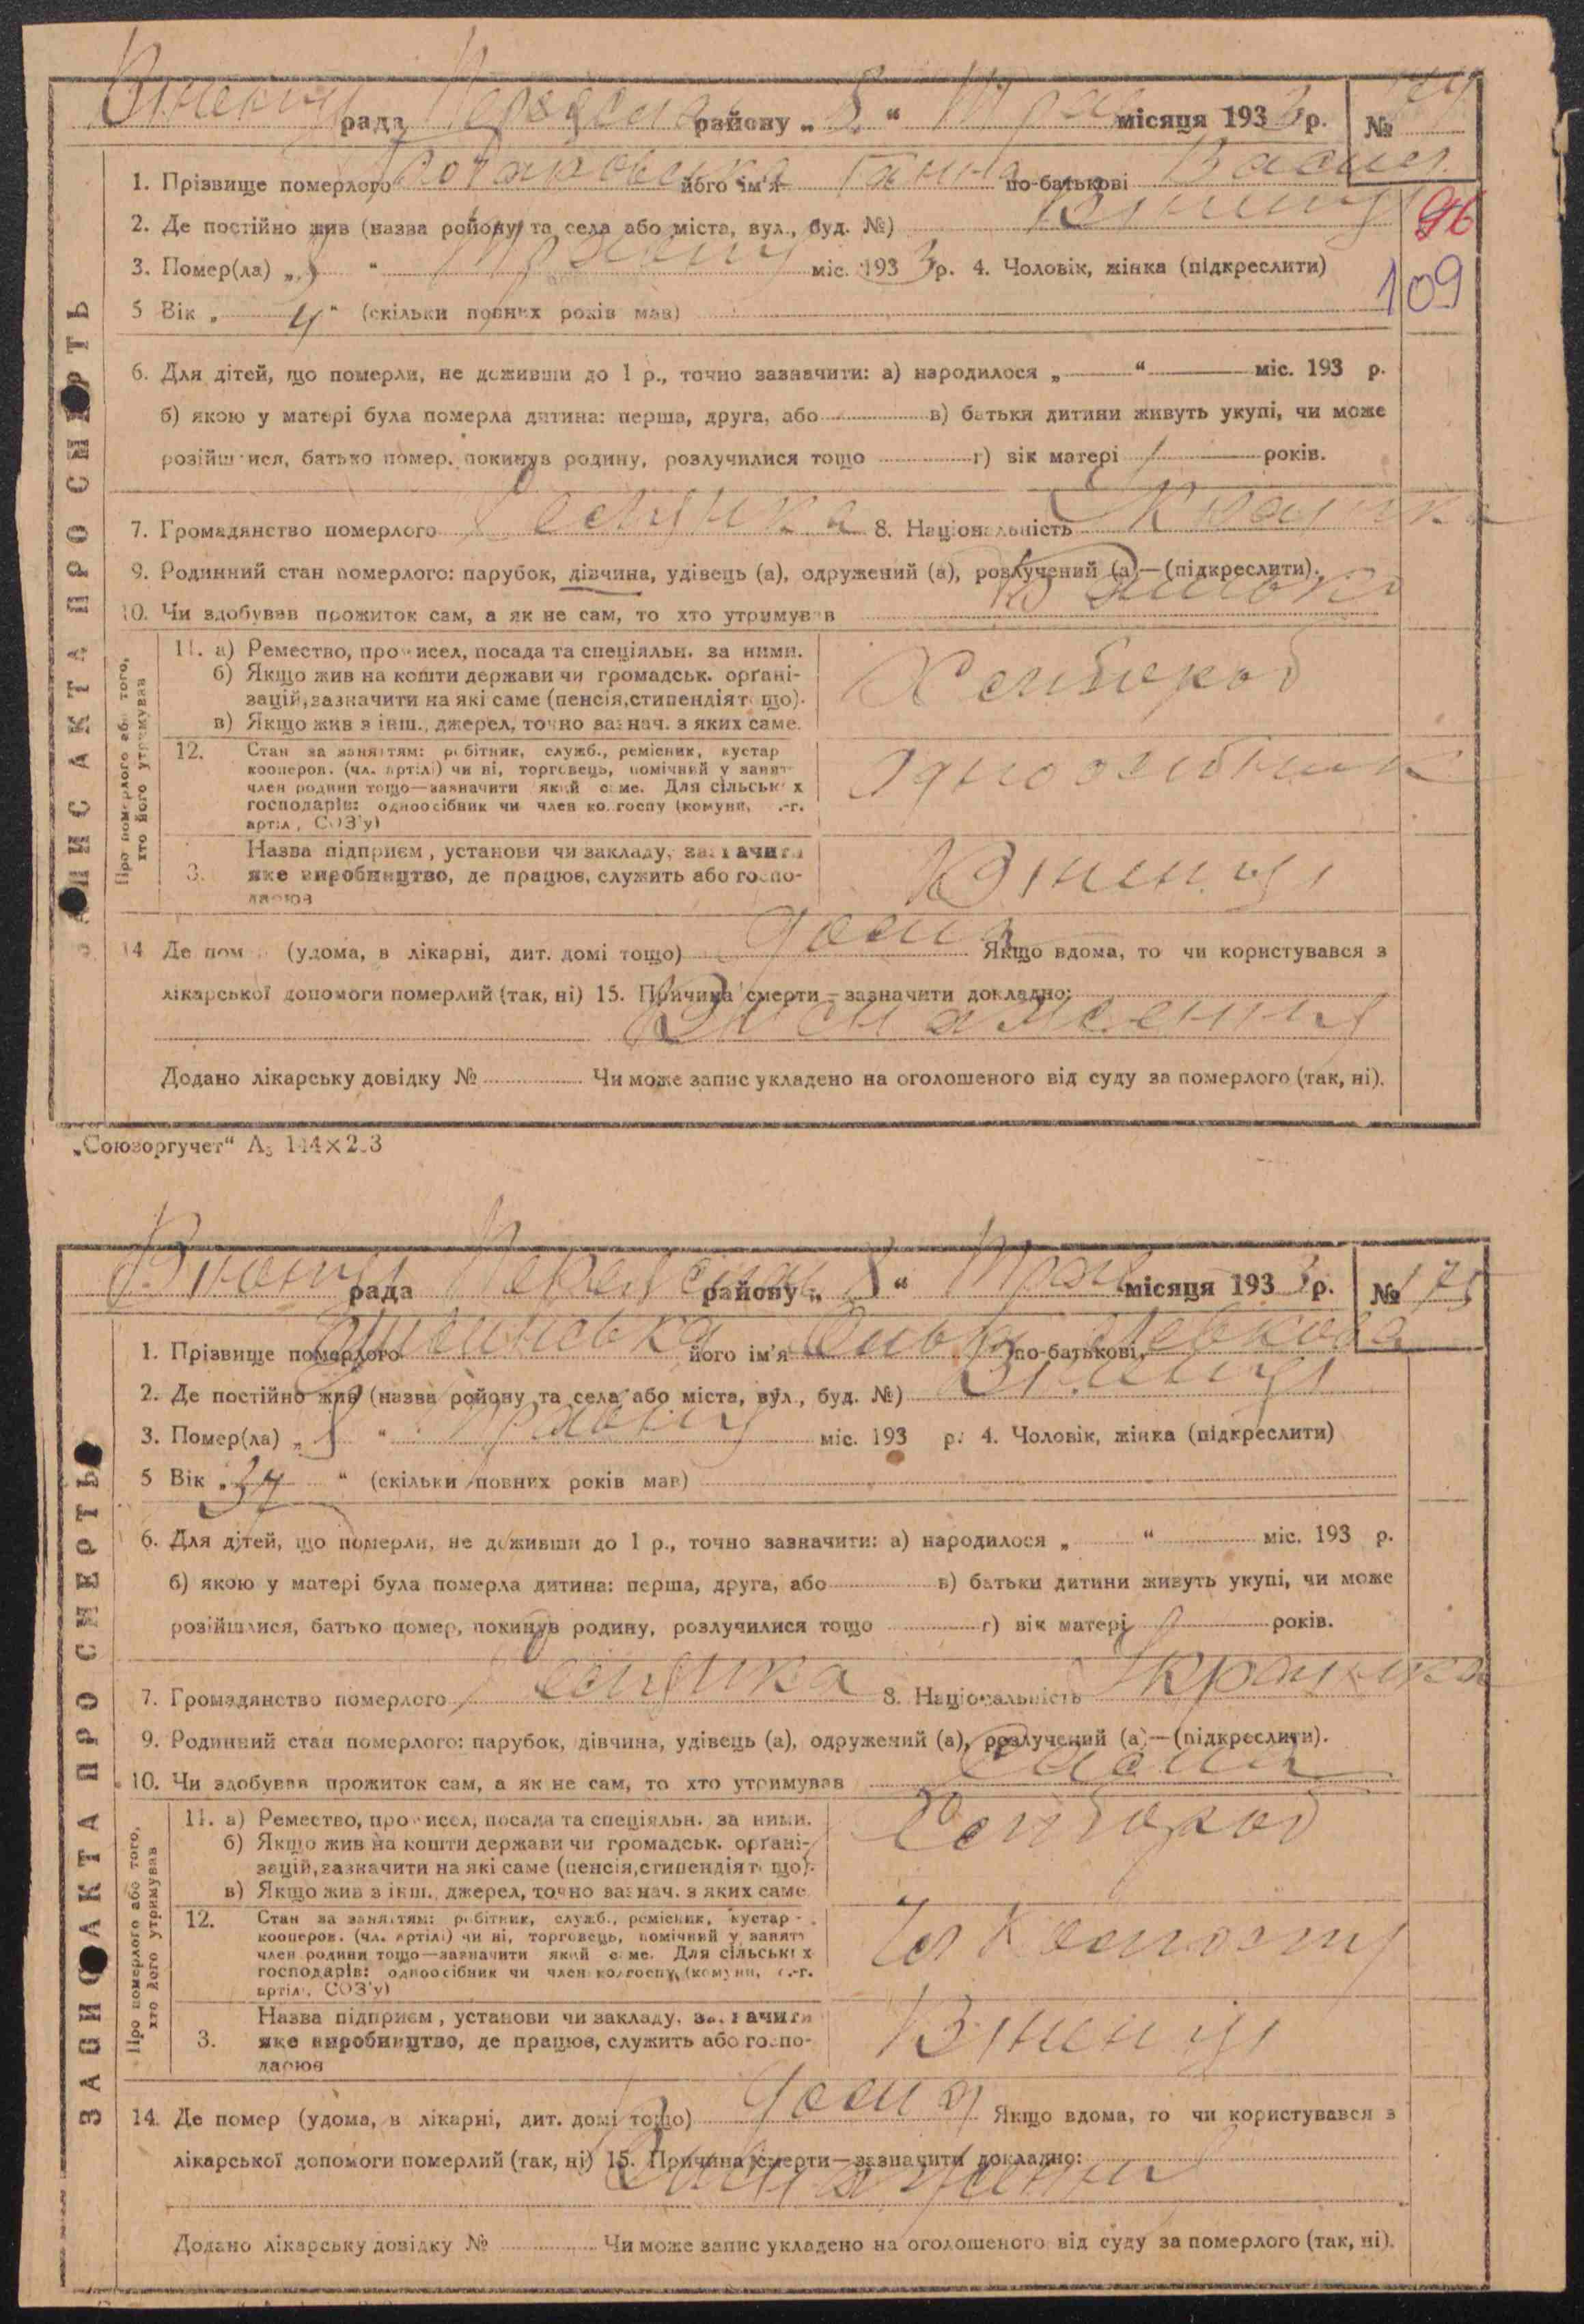 рада района „ 8 “ Трав місяця 1933 р. №
1. Прізвище померлого його ім'я Ганна по-батькові Васил.
2. Де постійно жив (назва ройону та села або міста, вул., буд. №)
3. Помер(ла) „ 8 “ Травня міс. 1933 р. 4. Чоловік, жінка (підкреслити)
96
109
5 Вік „ 4 “ (скільки повних років мав)
6. Для дітей, що померли, не доживши до 1 р., точно зазначити: а) народилося „ “ міс. 193 р.
б) якою у матері була померла дитина: перша, друга, або в) батьки дитини живуть укупі, чи може
розійшлися, батько помер, покинув родину, розлучилися тощо г) вік матері років.
7. Громадянство померлого 8. Національність
9. Родинний стан померлого: парубок, дівчина, удівець (а), одружений (а), розлучений (а)—(підкреслити).
10. Чи здобував прожиток сам, а як не сам, то хто утримував
ЗАПИС АКТА ПРО СМЕРТЬ
Про померлого або того, хто його утримував
11. а) Ремество, про исел, посада та спеціяльн. за ними.
б) Якщо жив на кошти держави чи громадськ. орґані-
зацій, зазначити на які саме (пенсія, стипендія т що).
в) Якщо жив з інш., джерел, точно зазнач. з яких саме.
Хлібороб
12. Стан за заняттям: робітник, служб., ремісник, кустар
кооперов. (чл. артілі) чи ні, торговець, помічний у занят
член родини тощо—зазначити який саме. Для сільськ х
господарів: одноосібник чи член колгоспу (комуни, с.-г.
артіл, СОЗ'у)
Одноосібник
Назва підприєм, установи чи закладу, зазначити
3. яке виробництво, де працює, служить або госпо-
дарює
14 Де пом (удома, в лікарні, дит. домі тощо) Дома Якщо вдома, то чи користувався з
лікарської допомоги померлий (так, ні) 15. Причина смерти—зазначити докладно:
Виснаження
Додано лікарську довідку № Чи може запис укладено на оголошеного від суду за померлого (так, ні).
„Союзоргучет“ А5 144×2 3
рада району „ 8 “ Трав місяця 1933 р. № 175
1. Прізвище померлого його ім'я по-батькові Левкова
2. Де постійно жив (назва ройону та села або міста, вул., буд. №)
3. Помер(ла) „ 8 “ Травня міс. 193 р. 4. Чоловік, жінка (підкреслити)
5 Вік „ 34 “ (скільки повних років мав)
6. Для дітей, що померли, не доживши до 1 р., точно зазначити: а) народилося „ “ міс. 193 р.
б) якою у матері була померла дитина: перша, друга, або в) батьки дитини живуть укупі, чи може
розійшлися, батько помер, покинув родину, розлучилися тощо г) вік матері років.
7. Громадянство померлого 8. Національність Українка
9. Родинний стан померлого: парубок, дівчина, удівець (а), одружений (а), розлучений (а)—(підкреслити).
10. Чи здобував прожиток сам, а як не сам, то хто утримував Сама
ЗАПИС АКТА ПРО СМЕРТЬ
Про померлого або того, хто його утримував
11. а) Ремество, про исел, посада та спеціяльн. за ними.
б) Якщо жив на кошти держави чи громадськ. орґані-
зацій, зазначити на які саме (пенсія, стипендія т що).
в) Якщо жив з інш., джерел, точно зазнач. з яких саме
Хлібороб
12. Стан за заняттям: робітник, служб., ремісник, кустар -
кооперов. (чл. артілі) чи ні, торговець, помічний у занят
член родини тощо—зазначити який саме. Для сільськ х
господарів: одноосібник чи член колгоспу (комуни, с.-г.
артіл, СОЗ'у)
Назва підприєм, установи чи закладу, зазначити
3. яке виробництво, де працює, служить або госпо-
дарює
14. Де помер (удома, в лікарні, дит. домі тощо) Дома Якщо вдома, то чи користувався з
лікарської допомоги померлий (так, ні) 15. Причина смерти—зазначити докладно:
Виснаження
Додано лікарську довідку № Чи може запис укладено на оголошеного від суду за померлого (так, ні).